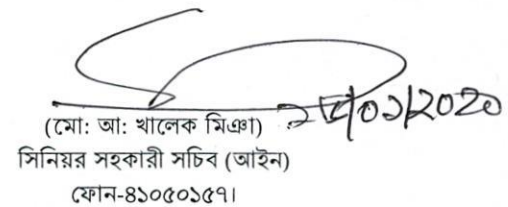 ২৮/০১/২০২০
(মো: আ: খালেক মিঞা)
সিনিয়র সহকারী সচিব (আইন)
ফোন-৪১০৫০১৫৭।